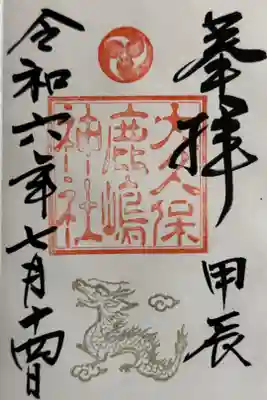 奉拝 甲辰
大久保
鹿嶋
神社
令和六年七月十四日